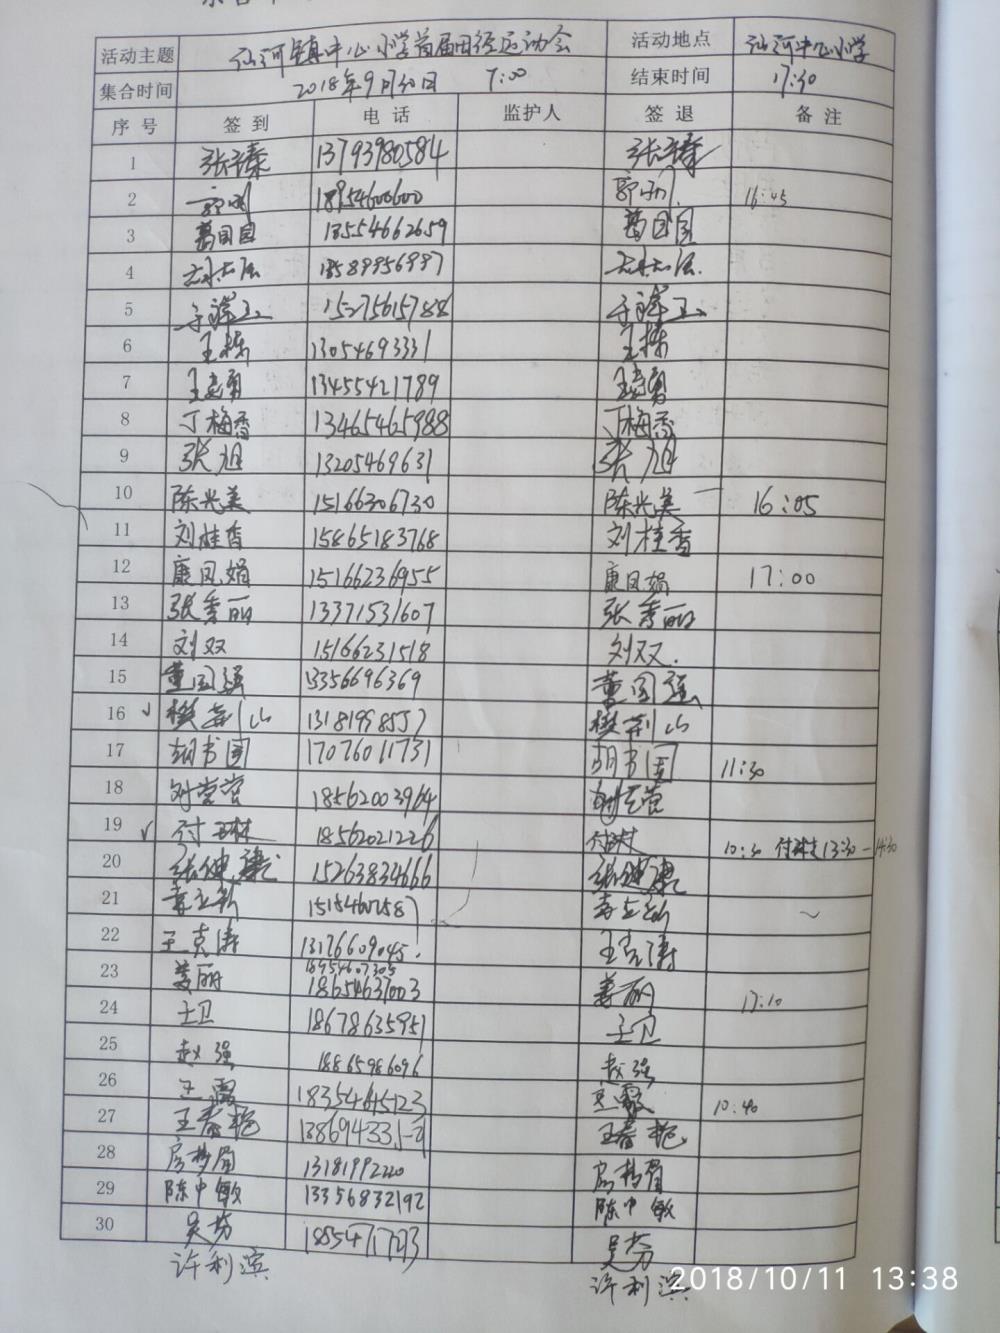 活动主题 仙河镇中心小学首届田径运动会 活动地点 仙河中心小学
集合时间 2018年9月30日 7:00 结束时间 17:30
序 号 签 到 电 话 监护人 签 退 备 注
1 张臻 13793980584 张臻
2 18954600600 16:45
3 葛国国 13554662659 葛国国
4 13589956997
5 于萍玉 15275615788 于萍玉
6 王栋 13054693331 王栋
7 王志勇 13455421789 王志勇
8 丁梅香 13465465988 丁梅香
9 张旭 13205469631 张旭
10 陈光美 15166306730 陈光美 16:05
11 刘桂香 15865183768 刘桂香
12 康凤娟 15166236955 康凤娟 17:00
13 张秀丽 13371531607 张秀丽
14 刘双 15166231518 刘双
15 董国强 13356696369 董国强
16 樊荆山 13181998557 樊荆山
17 胡书国 17076011731 胡书国 11:30
18 刘营营 18562003964
19 付琳 18562021226 付琳 10:30 13:30-14:30
20 张健康 15263834666 张健康
21 李立新 李立新
22 王克涛 13176609045 王克涛
23 姜丽 18954607305 18654637003 姜丽 17:10
24 王卫 18678635951 王卫
25 赵强 18865986096 赵强
26 王霞 18354645123 王霞 10:40
27 王春艳 王春艳
28 房梦眉 13181992220 房梦眉
29 陈中敏 13356832192 陈中敏
30 吴芬 吴芬
许利滨 许利滨
2018/10/11 13:38